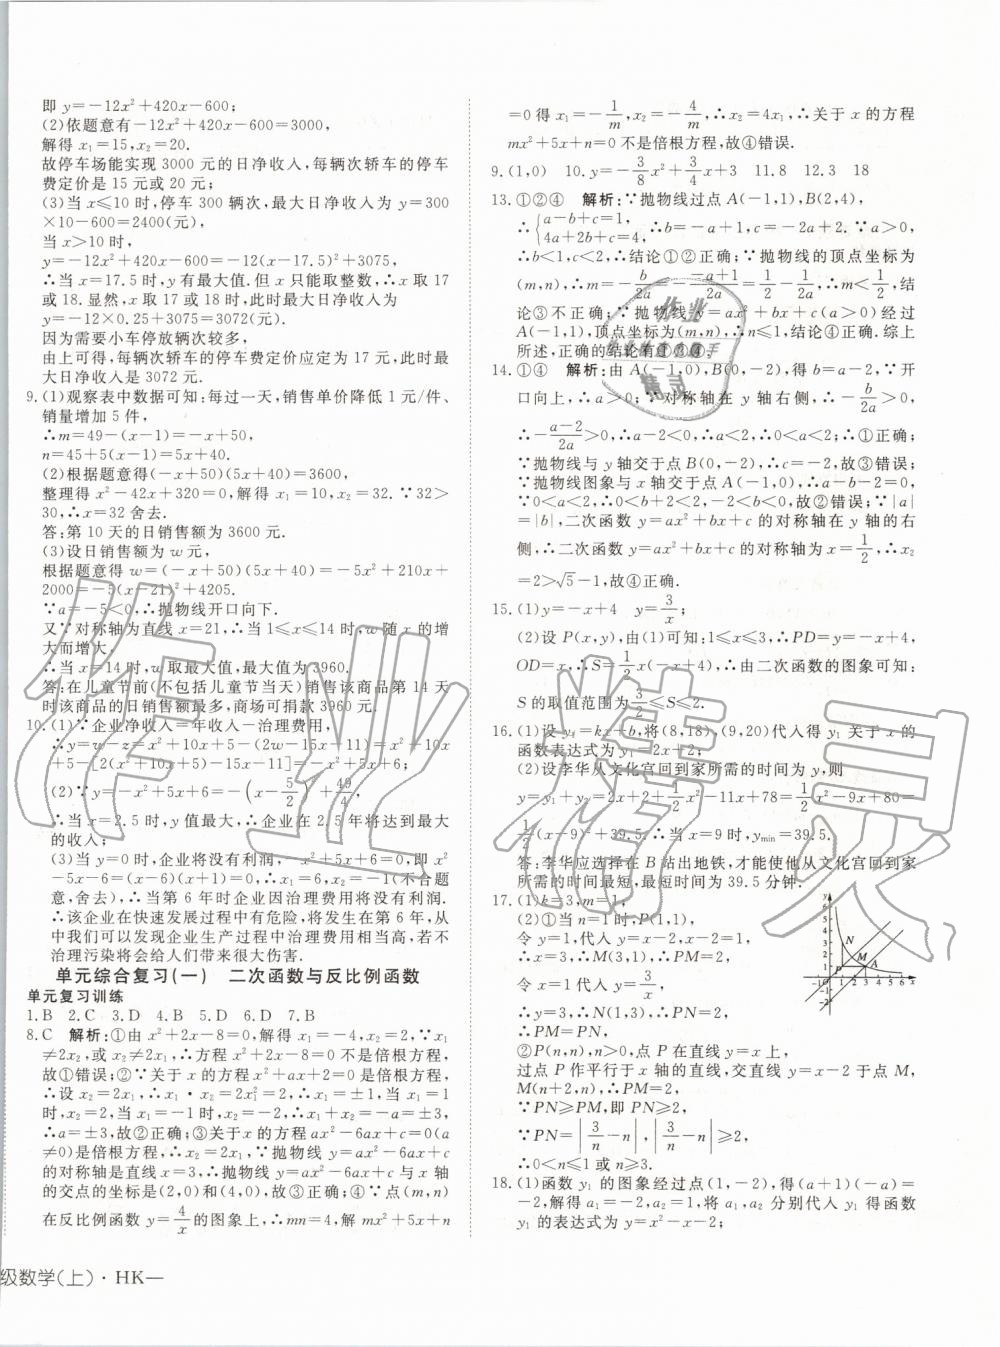 即 y=-12x²+420x-600;
(2)依题意有-12x²+420x-600=3000,
解得 x₁=15,x₂=20.
故停车场能实现 3000 元的日净收入,每辆次轿车的停车
费定价是 15 元或 20 元;
(3)当 x≤10 时,停车 300 辆次,最大日净收入为 300
×10-600=2400(元),
当 x>10 时,
y=-12x²+420x-600=-12(x-17.5)²+3075,
∴当 x=17.5 时,y 有最大值.但 x 只能取整数,∴x 取 17
或 18.显然,x 取 17 或 18 时,此时最大日净收入为
y=-12×0.25+3075=3072(元).
因为需要小车停放辆次较多,
由上可得,每辆次轿车的停车费定价应定为 17 元,此时最
大日净收入是 3072 元.
9.(1)观察表中数据可知:每过一天,销售单价降低 1 元/件、
销量增加 5 件,
∴m=49-(x-1)=-x+50,
n=45+5(x-1)=5x+40.
(2)根据题意得(-x+50)(5x+40)=3600,
整理得 x²-42x+320=0,解得 x₁=10,x₂=32.∵32>
30,∴x=32 舍去.
答:第 10 天的日销售额为 3600 元.
(3)设日销售额为 w 元,
根据题意得 w=(-x+50)(5x+40)=-5x²+210x+
2000=-5(x-21)²+4205.
∵a=-5<0,∴抛物线开口向下.
又∵对称轴为直线 x=21,∴当 1≤x≤14 时,w 随 x 的增
大而增大,
∴当 x=14 时,w 取最大值,最大值为 3960.
答:在儿童节前(不包括儿童节当天)销售该商品第 14 天
时该商品的日销售额最多,商场可捐款 3960 元.
10.(1)∵企业净收入=年收入-治理费用,
∴y=w-z=x²+10x-5-(2w-15x-11)=x²+10x
+5-[2(x²+10x+5)-15x-11]=-x²+5x+6;
(2)∵y=-x²+5x+6=-(x-5/2)²+49/4,
∴当 x=2.5 时,y 值最大,∴企业在 2.5 年将达到最大
的收入;
(3)当 y=0 时,企业将没有利润,-x²+5x+6=0,即 x²
-5x-6=(x-6)(x+1)=0,∴x₁=6,x₂=-1(不合题
意,舍去).∴当第 6 年时企业因治理费用将没有利润.
∴该企业在快速发展过程中有危险,将发生在第 6 年,从
中我们可以发现企业生产过程中治理费用相当高,若不
治理污染将会给人们带来很大伤害.
单元综合复习(一) 二次函数与反比例函数
单元复习训练
1.B 2.C 3.D 4.B 5.D 6.D 7.B
8.C 解析:①由 x²+2x-8=0,解得 x₁=-4,x₂=2,∵x₁
≠2x₂,或 x₂≠2x₁,∴方程 x²+2x-8=0 不是倍根方程,
故①错误;②∵关于 x 的方程 x²+ax+2=0 是倍根方程,
∴设 x₂=2x₁,∴x₁·x₂=2x₁²=2,∴x₁=±1,当 x₁=1
时,x₂=2,当 x₁=-1 时,x₂=-2,∴x₁+x₂=-a=±3,
∴a=±3,故②正确;③关于x的方程 ax²-6ax+c=0(a
≠0)是倍根方程,∴x₂=2x₁,∵抛物线 y=ax²-6ax+c
的对称轴是直线 x=3,∴抛物线 y=ax²-6ax+c 与 x 轴
的交点的坐标是(2,0)和(4,0),故③正确;④∵点(m,n)
在反比例函数 y=4/x的图象上,∴mn=4,解 mx²+5x+n
=0得 x₁=-1/m,x₂=-4/m,∴x₂=4x₁,∴关于 x 的方程
mx²+5x+n=0不是倍根方程,故④错误.
9.(1,0) 10.y=-3/8x²+3/4x+3 11.8 12.3 18
13.①②④ 解析:∵抛物线过点 A(-1,1),B(2,4),
∴{a-b+c=1, 4a+2b+c=4, ∴b=-a+1,c=-2a+2.∵a>0,
∴b<1,c<2,∴结论①②正确;∵抛物线的顶点坐标为
(m,n),∴m=-b/2a=-(-a+1)/2a=1/2-1/2a,∴m<1/2,结
论③不正确;∵抛物线 y=ax²+bx+c(a>0)经过
A(-1,1),顶点坐标为(m,n),∴n≤1,结论④正确.综上
所述,正确的结论有①②④.
14.①④ 解析:由 A(-1,0),B(0,-2),得 b=a-2,∵开
口向上,∴a>0;∵对称轴在 y 轴右侧,∴-b/2a>0,
∴-(a-2)/2a>0,∴a-2<0,∴a<2,∴0<a<2,∴①正确;
∵抛物线与 y 轴交于点 B(0,-2),∴c=-2,故③错误;
∵抛物线图象与 x 轴交于点 A(-1,0),∴a-b-2=0,
∵0<a<2,∴0<b+2<2,-2<b<0,故②错误;∵|a|
=|b|,二次函数 y=ax²+bx+c 的对称轴在 y 轴的右
侧,∴二次函数 y=ax²+bx+c 的对称轴为 x=1/2,∴x₂
=2>√5-1,故④正确.
15.(1)y=-x+4 y=3/x;
(2)设 P(x,y),由(1)可知:1≤x≤3,∴PD=y=-x+4,
OD=x,∴S=1/2x(-x+4),∴由二次函数的图象可知:
S的取值范围为3/2≤S≤2.
16.(1)设 y₁=kx+b,将(8,18),(9,20)代入得 y₁ 关于 x 的
函数表达式为 y₁=2x+2;
(2)设李华从文化宫回到家所需的时间为 y,则
y=y₁+y₂=2x+2+1/2x²-11x+78=1/2x²-9x+80=
1/2(x-9)²+39.5.∴当 x=9 时,yₘᵢₙ=39.5.
答:李华应选择在 B 站出地铁,才能使他从文化宫回到家
所需的时间最短,最短时间为 39.5 分钟.
17.(1)k=3,m=1;
(2)①当 n=1 时,P(1,1),
令 y=1,代入 y=x-2,x-2=1,
∴x=3,∴M(3,1),∴PM=2,
令 x=1,代入 y=3/x,
∴y=3,∴N(1,3),∴PN=2,
∴PM=PN,
②P(n,n),n>0,点 P 在直线 y=x 上,
过点 P 作平行于 x 轴的直线,交直线 y=x-2 于点 M,
M(n+2,n),∴PM=2,
∵PN≥PM,即 PN≥2,
∵PN=|3/n-n|,|3/n-n|≥2,
∴0<n≤1 或 n≥3.
18.(1)函数 y₁ 的图象经过点(1,-2),得(a+1)(-a)=
-2,解得 a₁=-2,a₂=1,将 a₁,a₂ 分别代入 y₁ 得函数
y₁ 的表达式为 y=x²-x-2;
级数学(上)·HK—
作业精灵